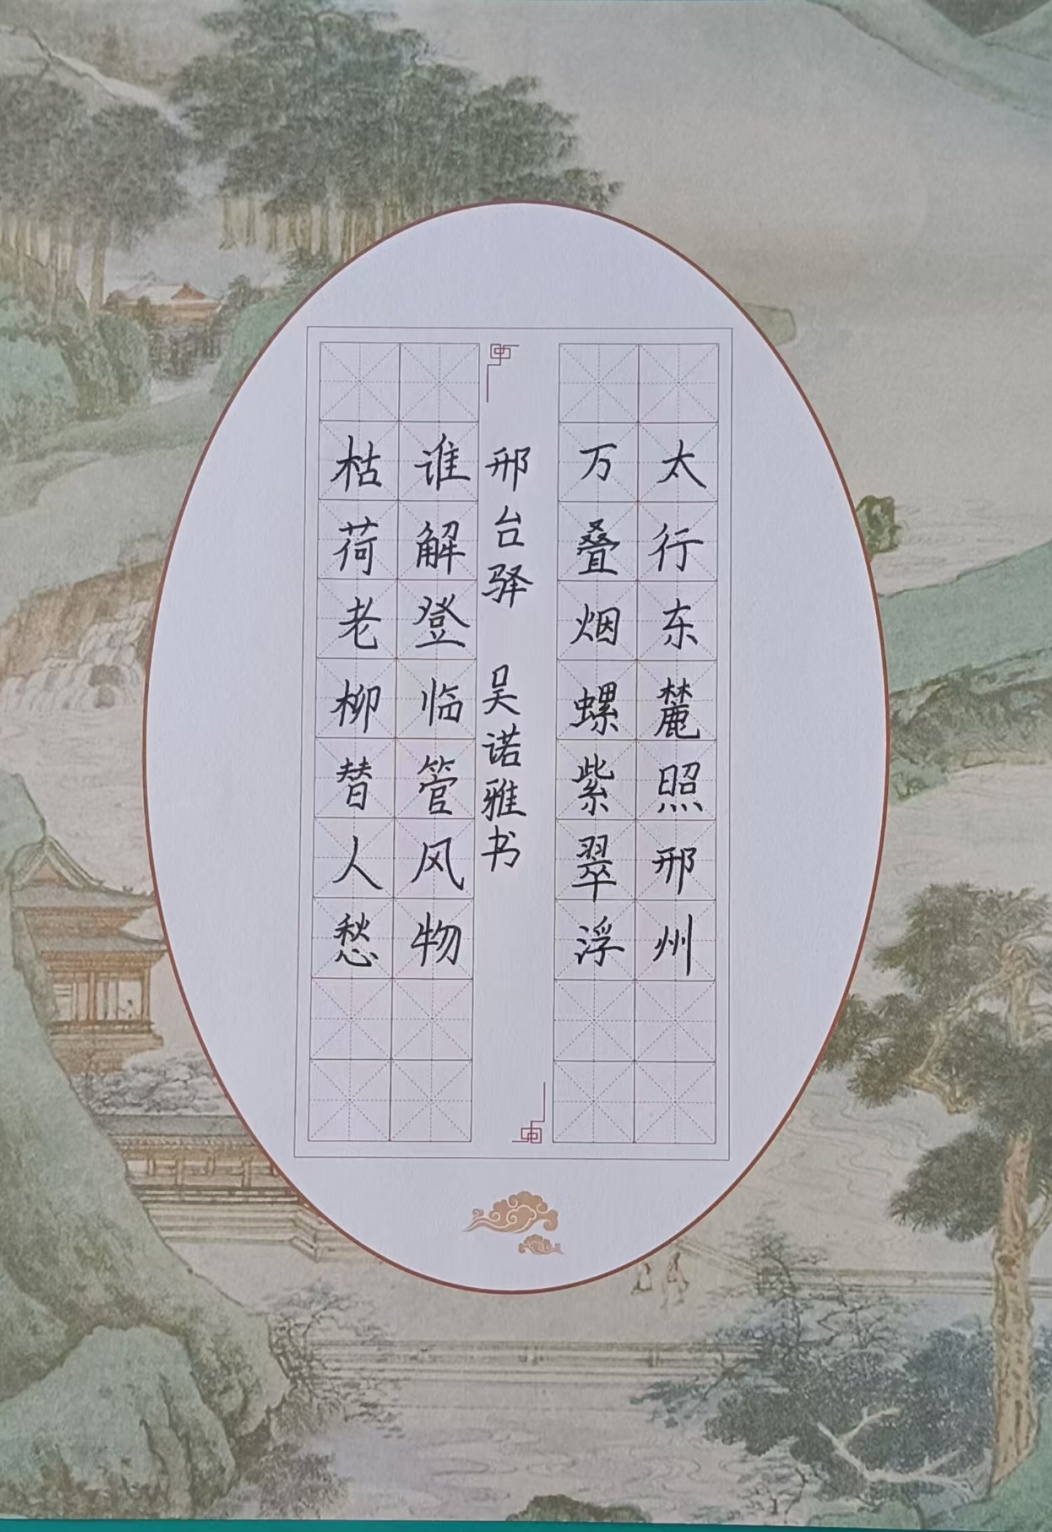 太行东麓照邢州
万叠烟螺紫翠浮
邢台驿 吴诺雅书
谁解登临管风物
枯荷老柳替人愁